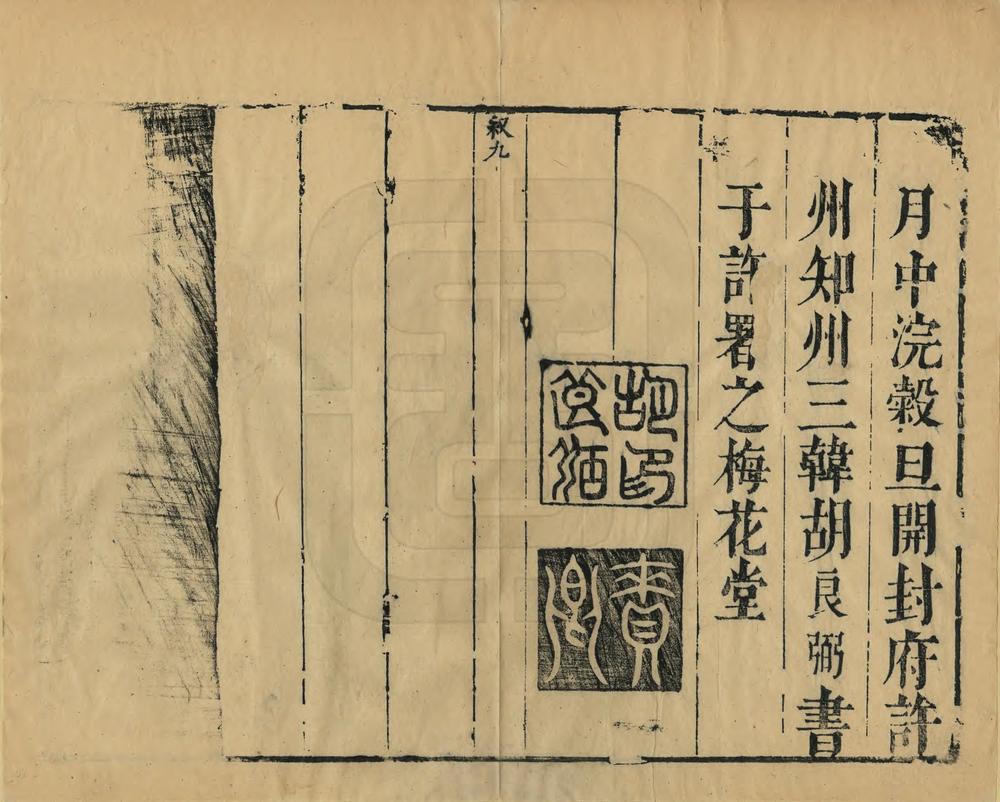 月中浣榖旦開封府許
州知州三韓胡良弼書
于許署之梅花堂
胡印
良弼
賚
叙九